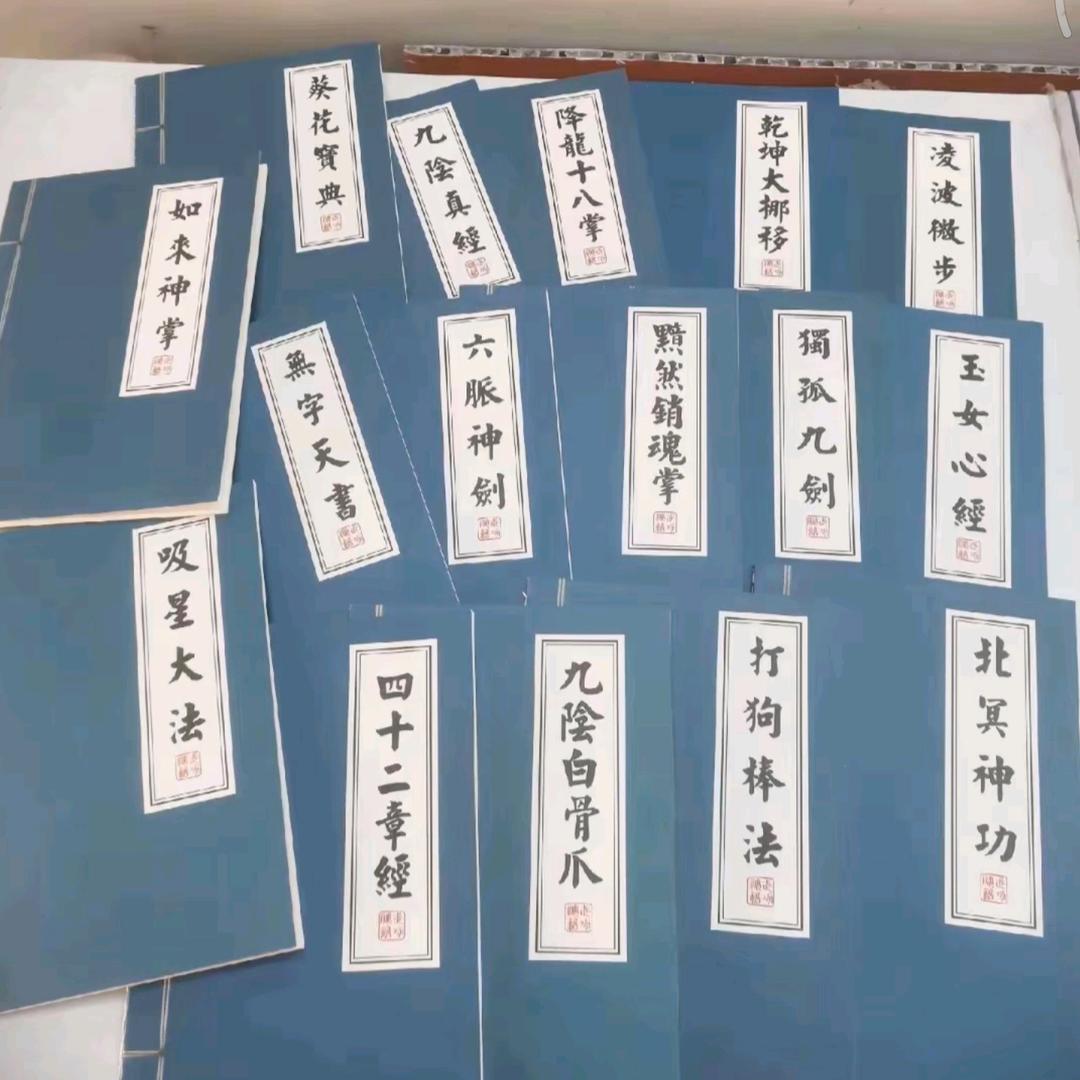 葵花寶典
九陰真經
降龍十八掌
乾坤大挪移
凌波微步
如來神掌
無字天書
六脈神劍
黯然銷魂掌
獨孤九劍
玉女心經
吸星大法
四十二章經
九陰白骨爪
打狗棒法
北冥神功